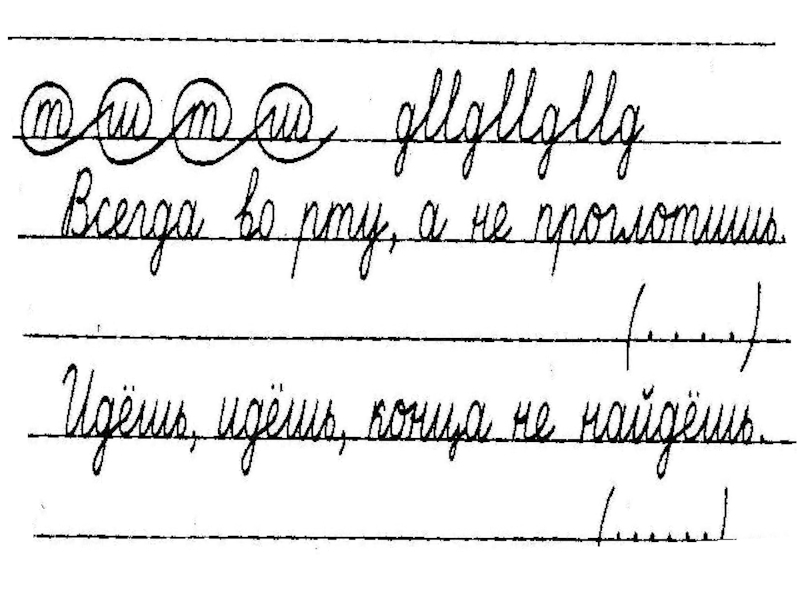 т ш т ш gllgllgllg
Всегда во рту, а не проглотишь.
(....)
Идёшь, идёшь, конца не найдёшь.
(......)